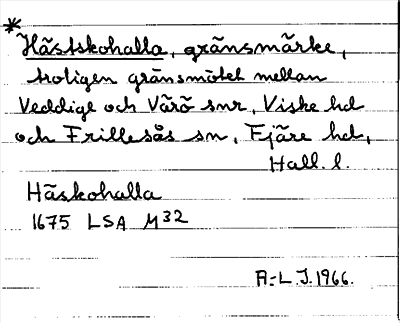 *Hästskohalla, gränsmärke,
troligen gränsmötet mellan
Veddige och Värö snr, Viske hd
och Frillesås sn, Fjäre hd,
Hall. l.
Häskohalla
1675 LSA M32
A-L J. 1966.